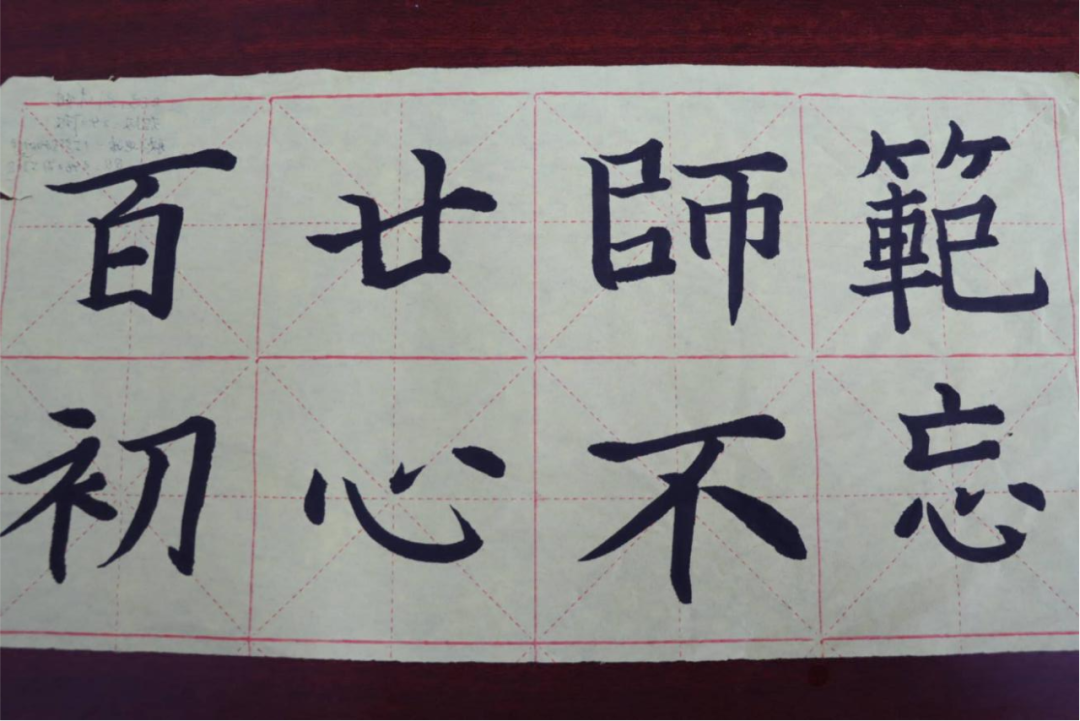 百廿師範
初心不忘